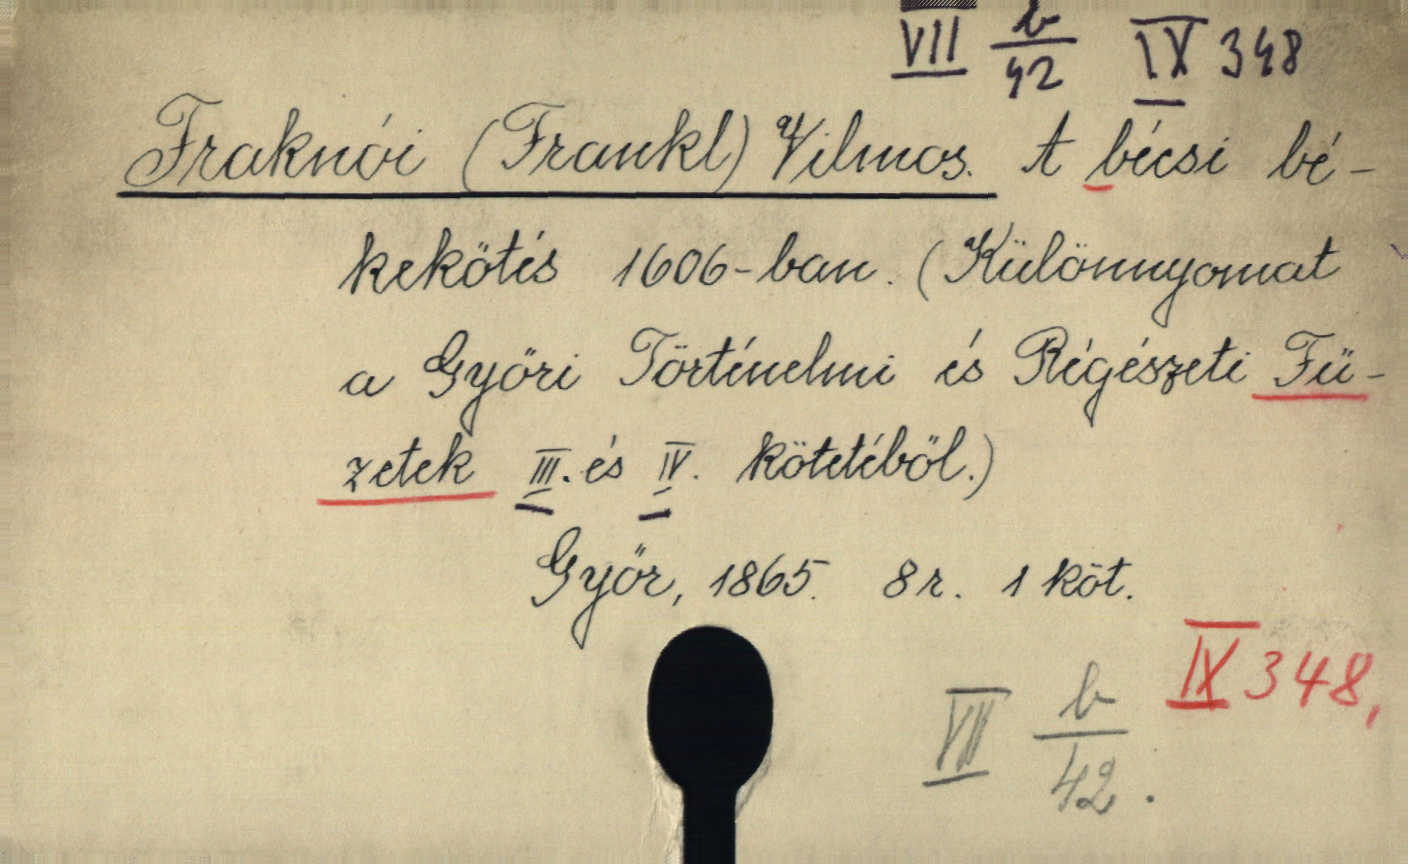 VII b/42 IX 348
Fraknói (Frankl) Vilmos. A bécsi bé-
kekötés 1606-ban. (Különnyomat
a Győri Történelmi és Régészeti Fü-
zetek III. és IV. kötetéből.)
Győr, 1865. 8r. 1 köt.
IX 348,
VII b/42.